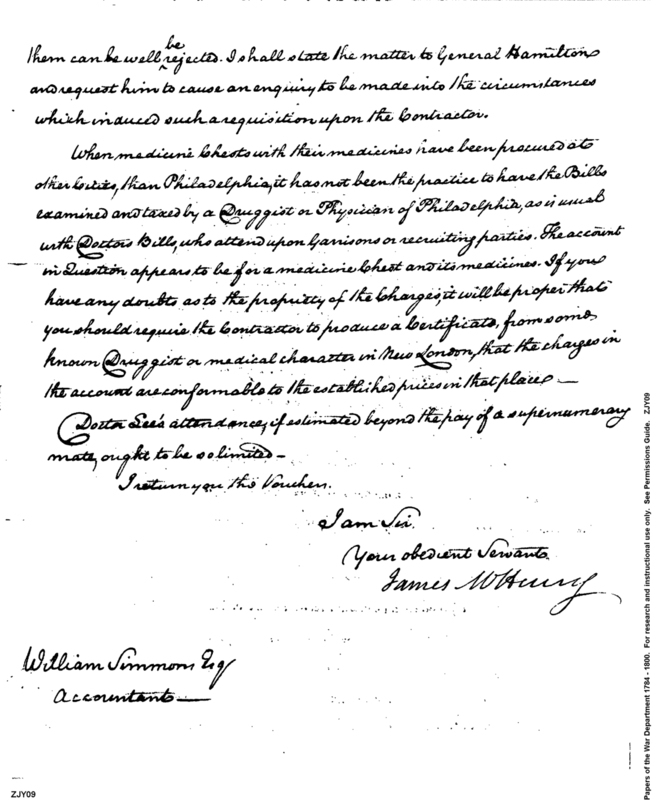 them can be well be rejected. I shall state the matter to General Hamilton
and request him to cause an enquiry to be made into the circumstances
which induced such a requisition upon the Contractor.
When medicine Chests with their medicines have been procured at
other Cities, than Philadelphia, it has not been the practice to have the Bills
examined and taxed by a Druggist or Physician of Philadelphia, as is usual
with Doctors Bills, who attend upon Garrisons or recruiting parties. The account
in Question appears to be for a medicine Chest and its medicines. If you
have any doubts as to the propriety of the Charges, it will be proper that
you should require the Contractor to produce a Certificate, from some
known Druggist or medical character in New London, that the charges in
the account are conformable to the established prices in that place —
Doctor Lee's attendance, if estimated beyond the pay of a supernumerary
mate, ought to be so limited —
I return you the Vouchers.
I am Sir.
Your obedient Servant
James McHenry
William Simmons Esqr
Accountant —
ZJY09
Papers of the War Department 1784 - 1800. For research and instructional use only. See Permissions Guide. ZJY09